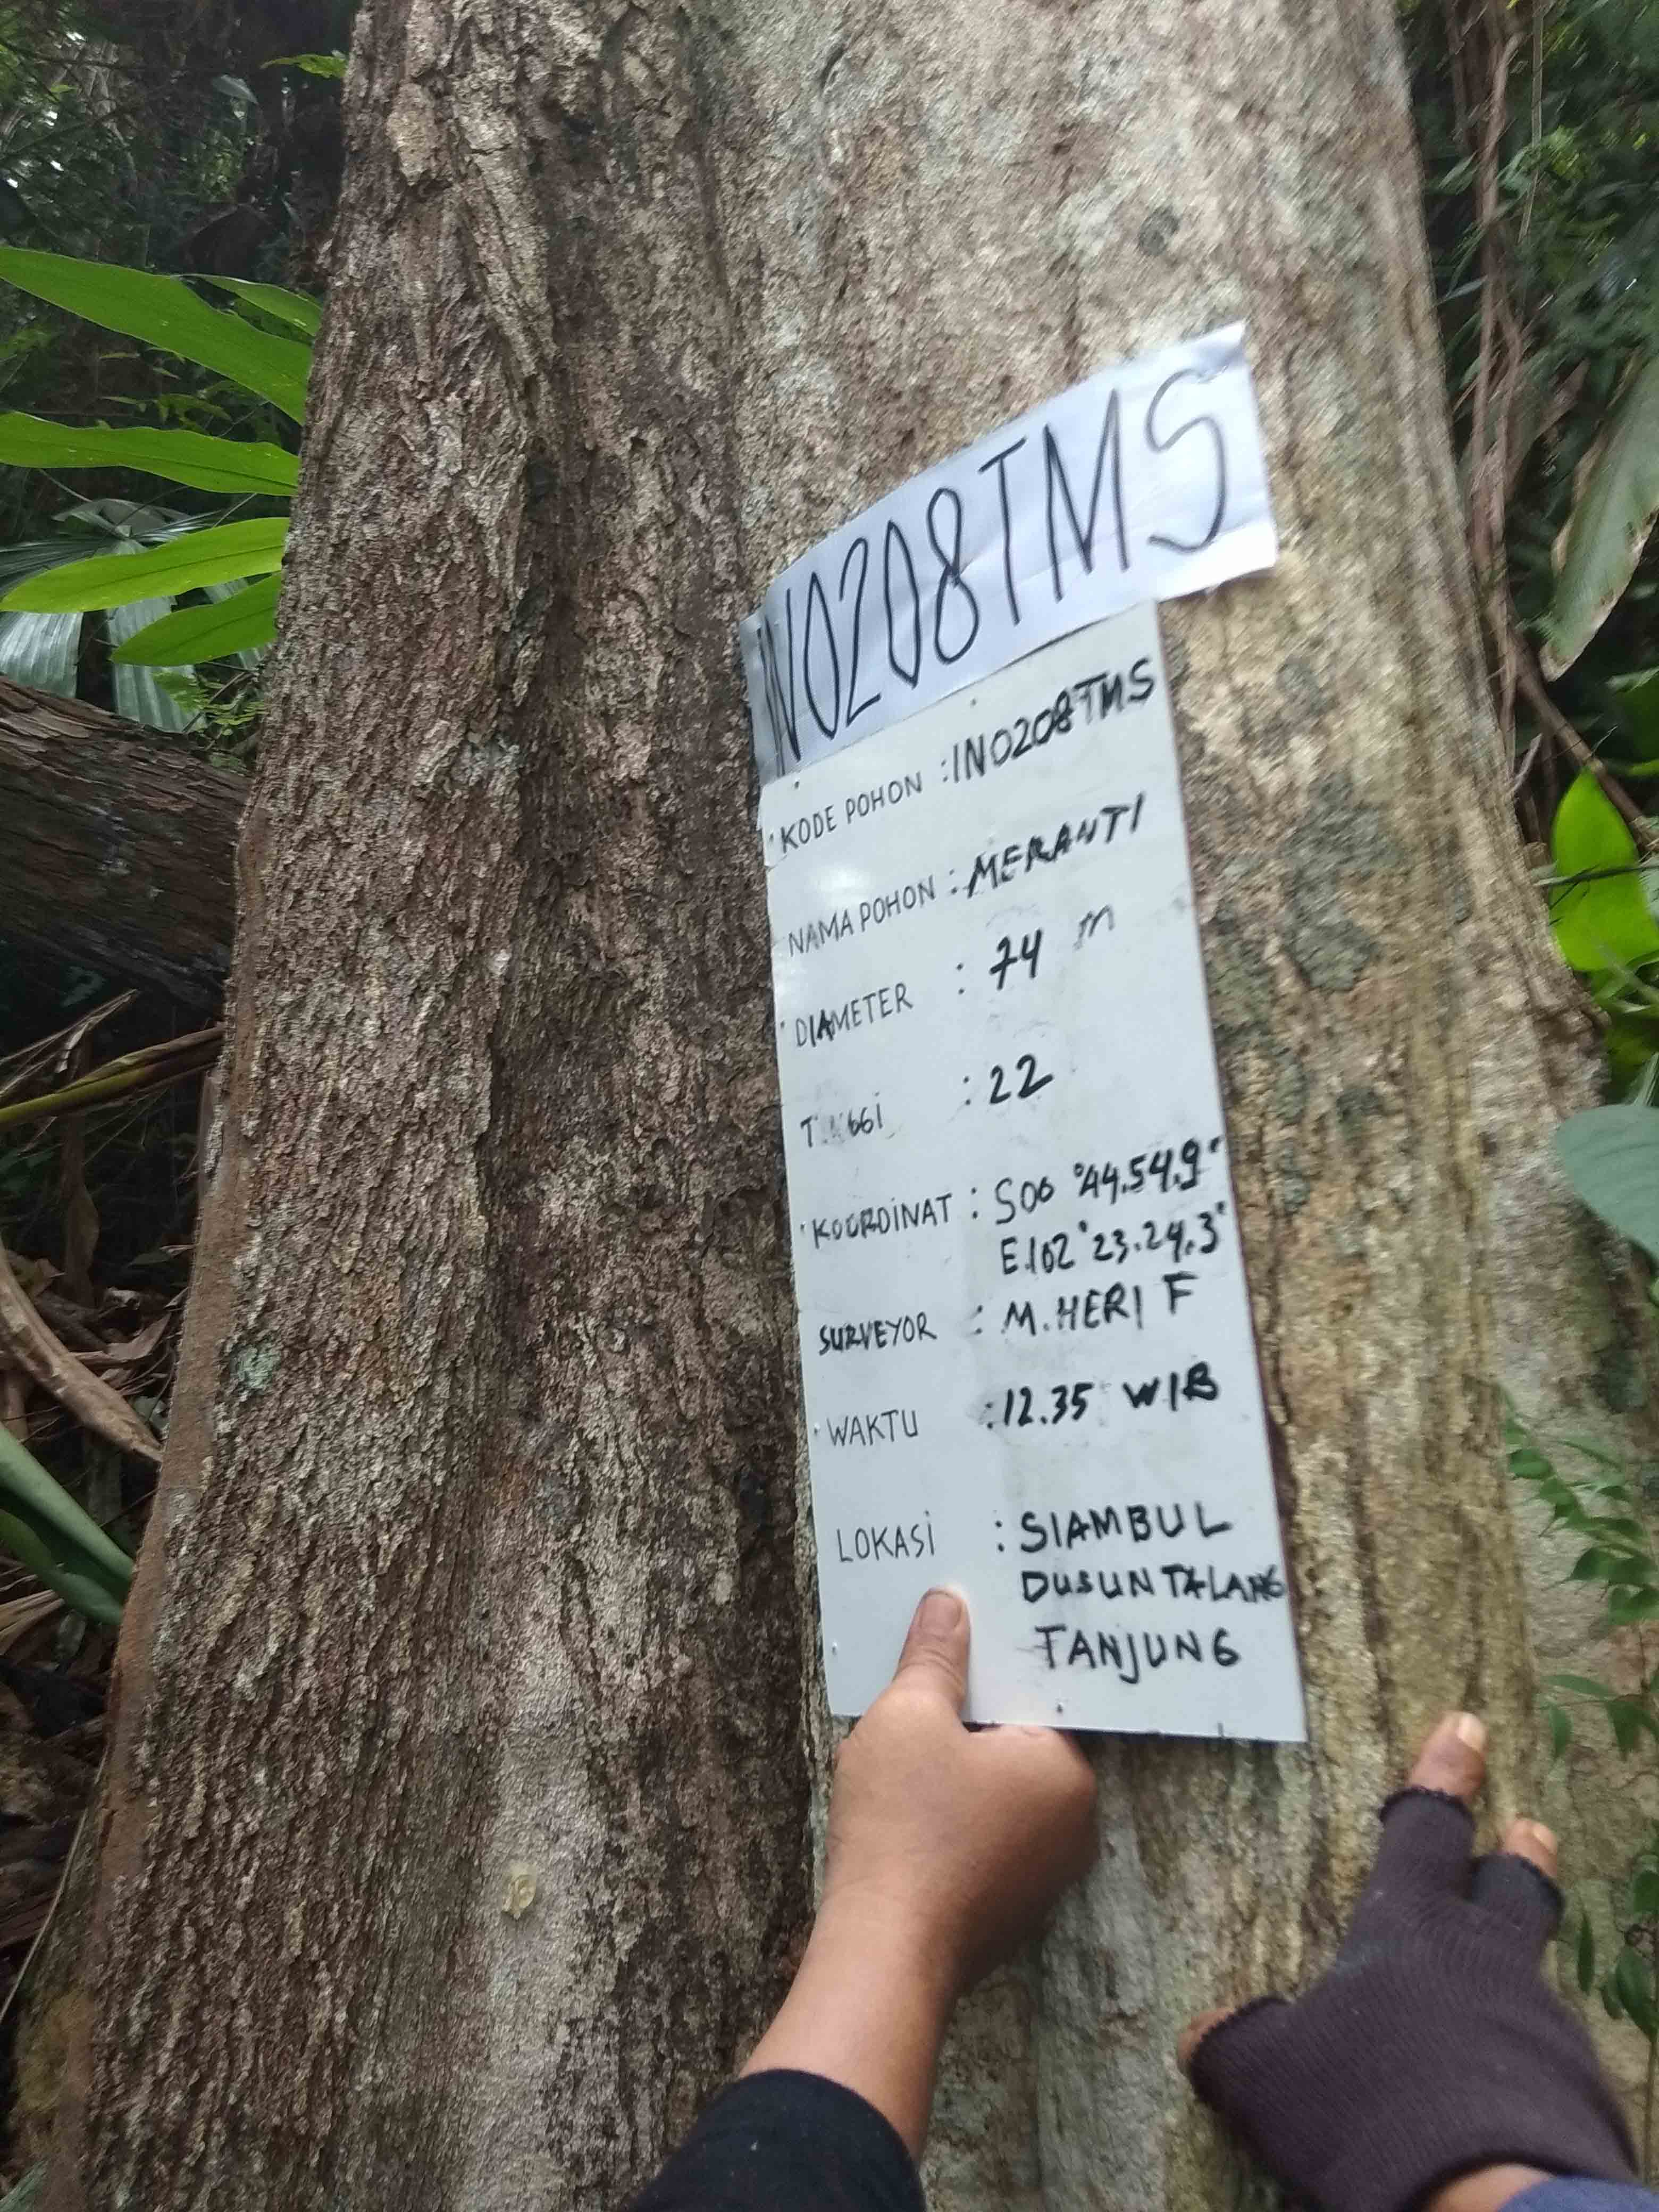 IN0208TMS
KODE POHON : IN0208TMS
NAMA POHON : MERANTI
DIAMETER : 74 m
: 22
KOORDINAT : S00 °44.54.9"
E.102°23.24.3"
SURVEYOR : M.HERI F
WAKTU : 12.35 WIB
LOKASi : SIAMBUL
DUSUN TALANG
TANJUNG